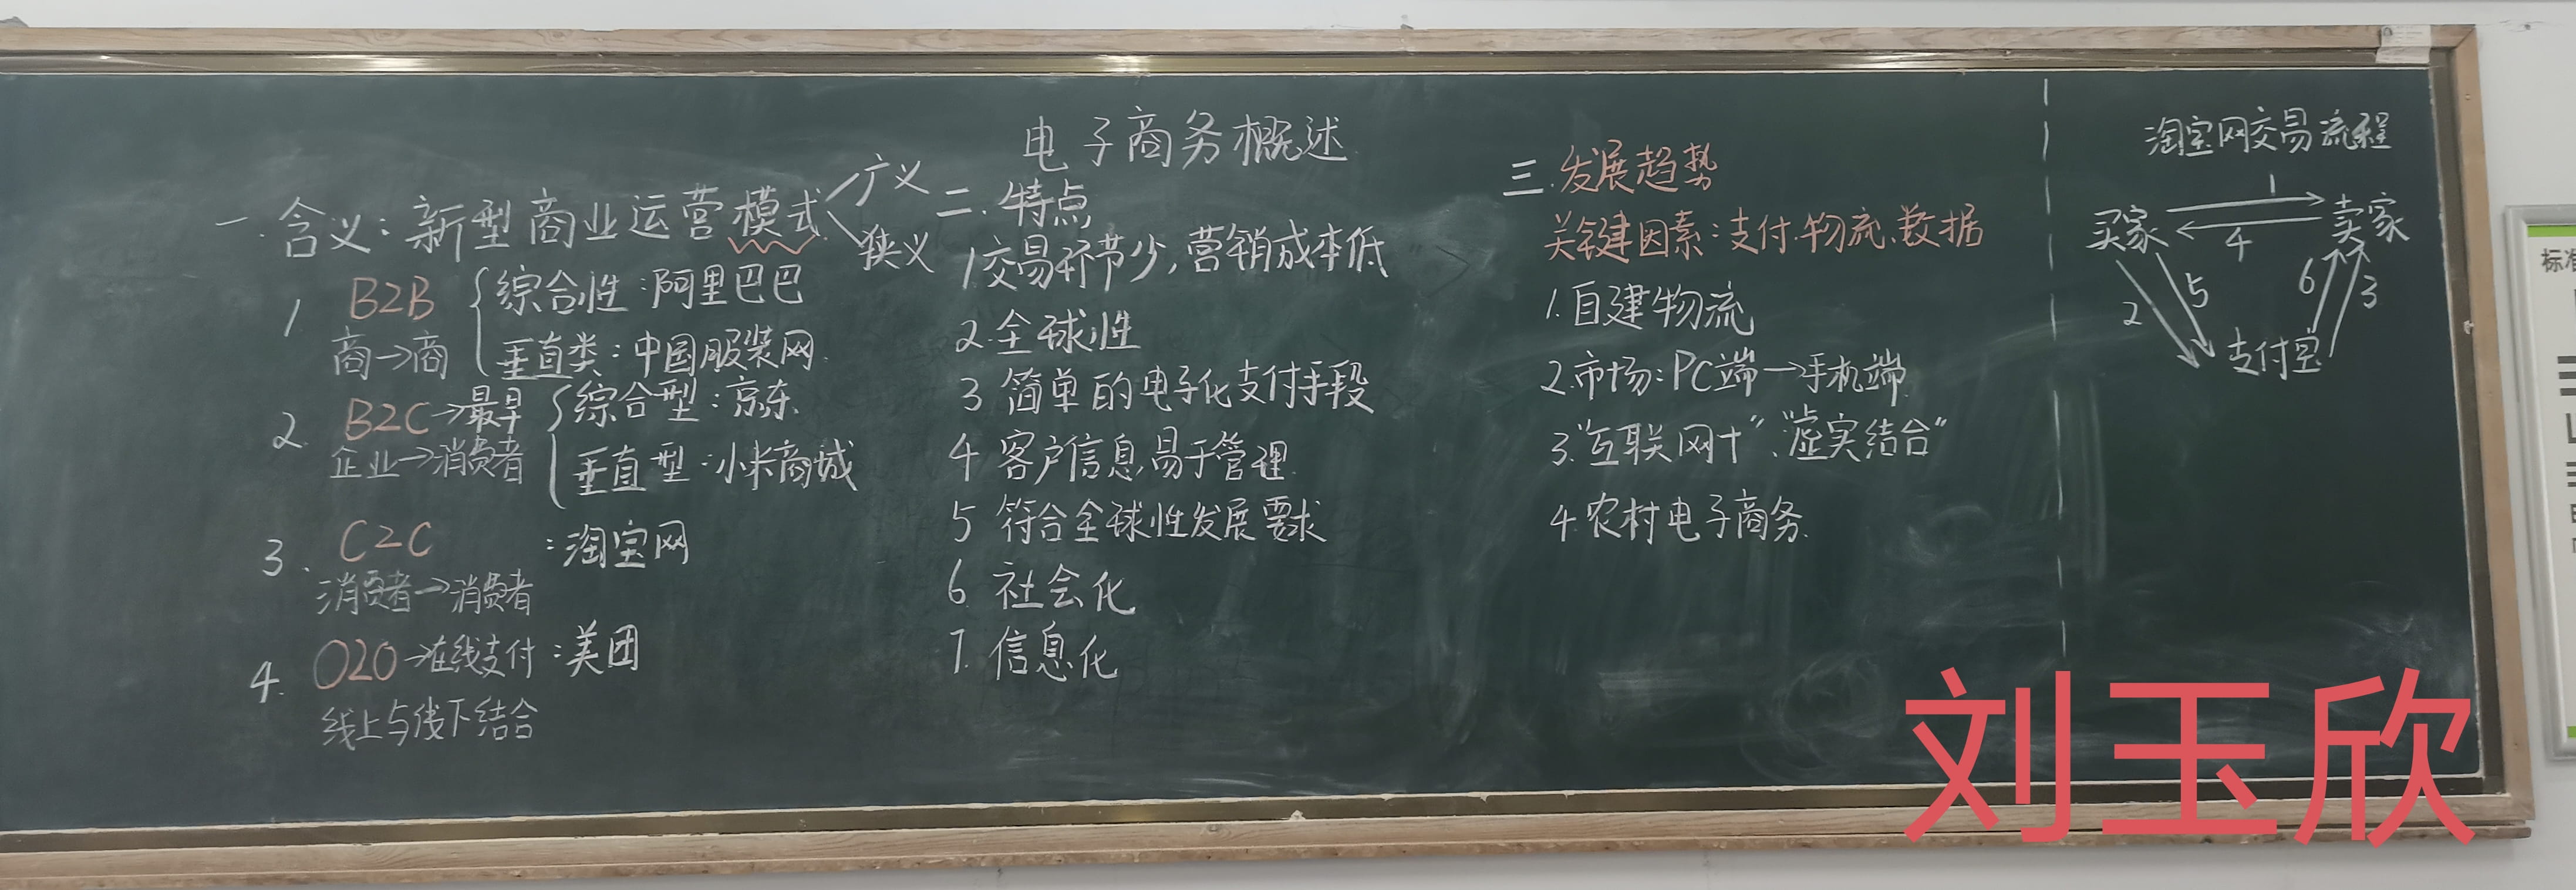 电子商务概述
一.含义：新型商业运营模式
广义
狭义
1 B2B
商→商
综合性：阿里巴巴
垂直类：中国服装网
2. B2C→最早
企业→消费者
综合型：京东
垂直型：小米商城
3. C2C ：淘宝网
消费者→消费者
4. O2O→在线支付：美团
线上与线下结合
二.特点
1.交易环节少，营销成本低
2.全球性
3 简单的电子化支付手段
4 客户信息易于管理
5 符合全球性发展要求
6 社会化
7. 信息化
三.发展趋势
关键因素：支付、物流、数据
1.自建物流
2.市场：PC端→手机端
3.“互联网+”、“虚实结合”
4.农村电子商务.
淘宝网交易流程
1
买家 卖家
4
2 5 6 3
支付宝
标准
刘玉欣